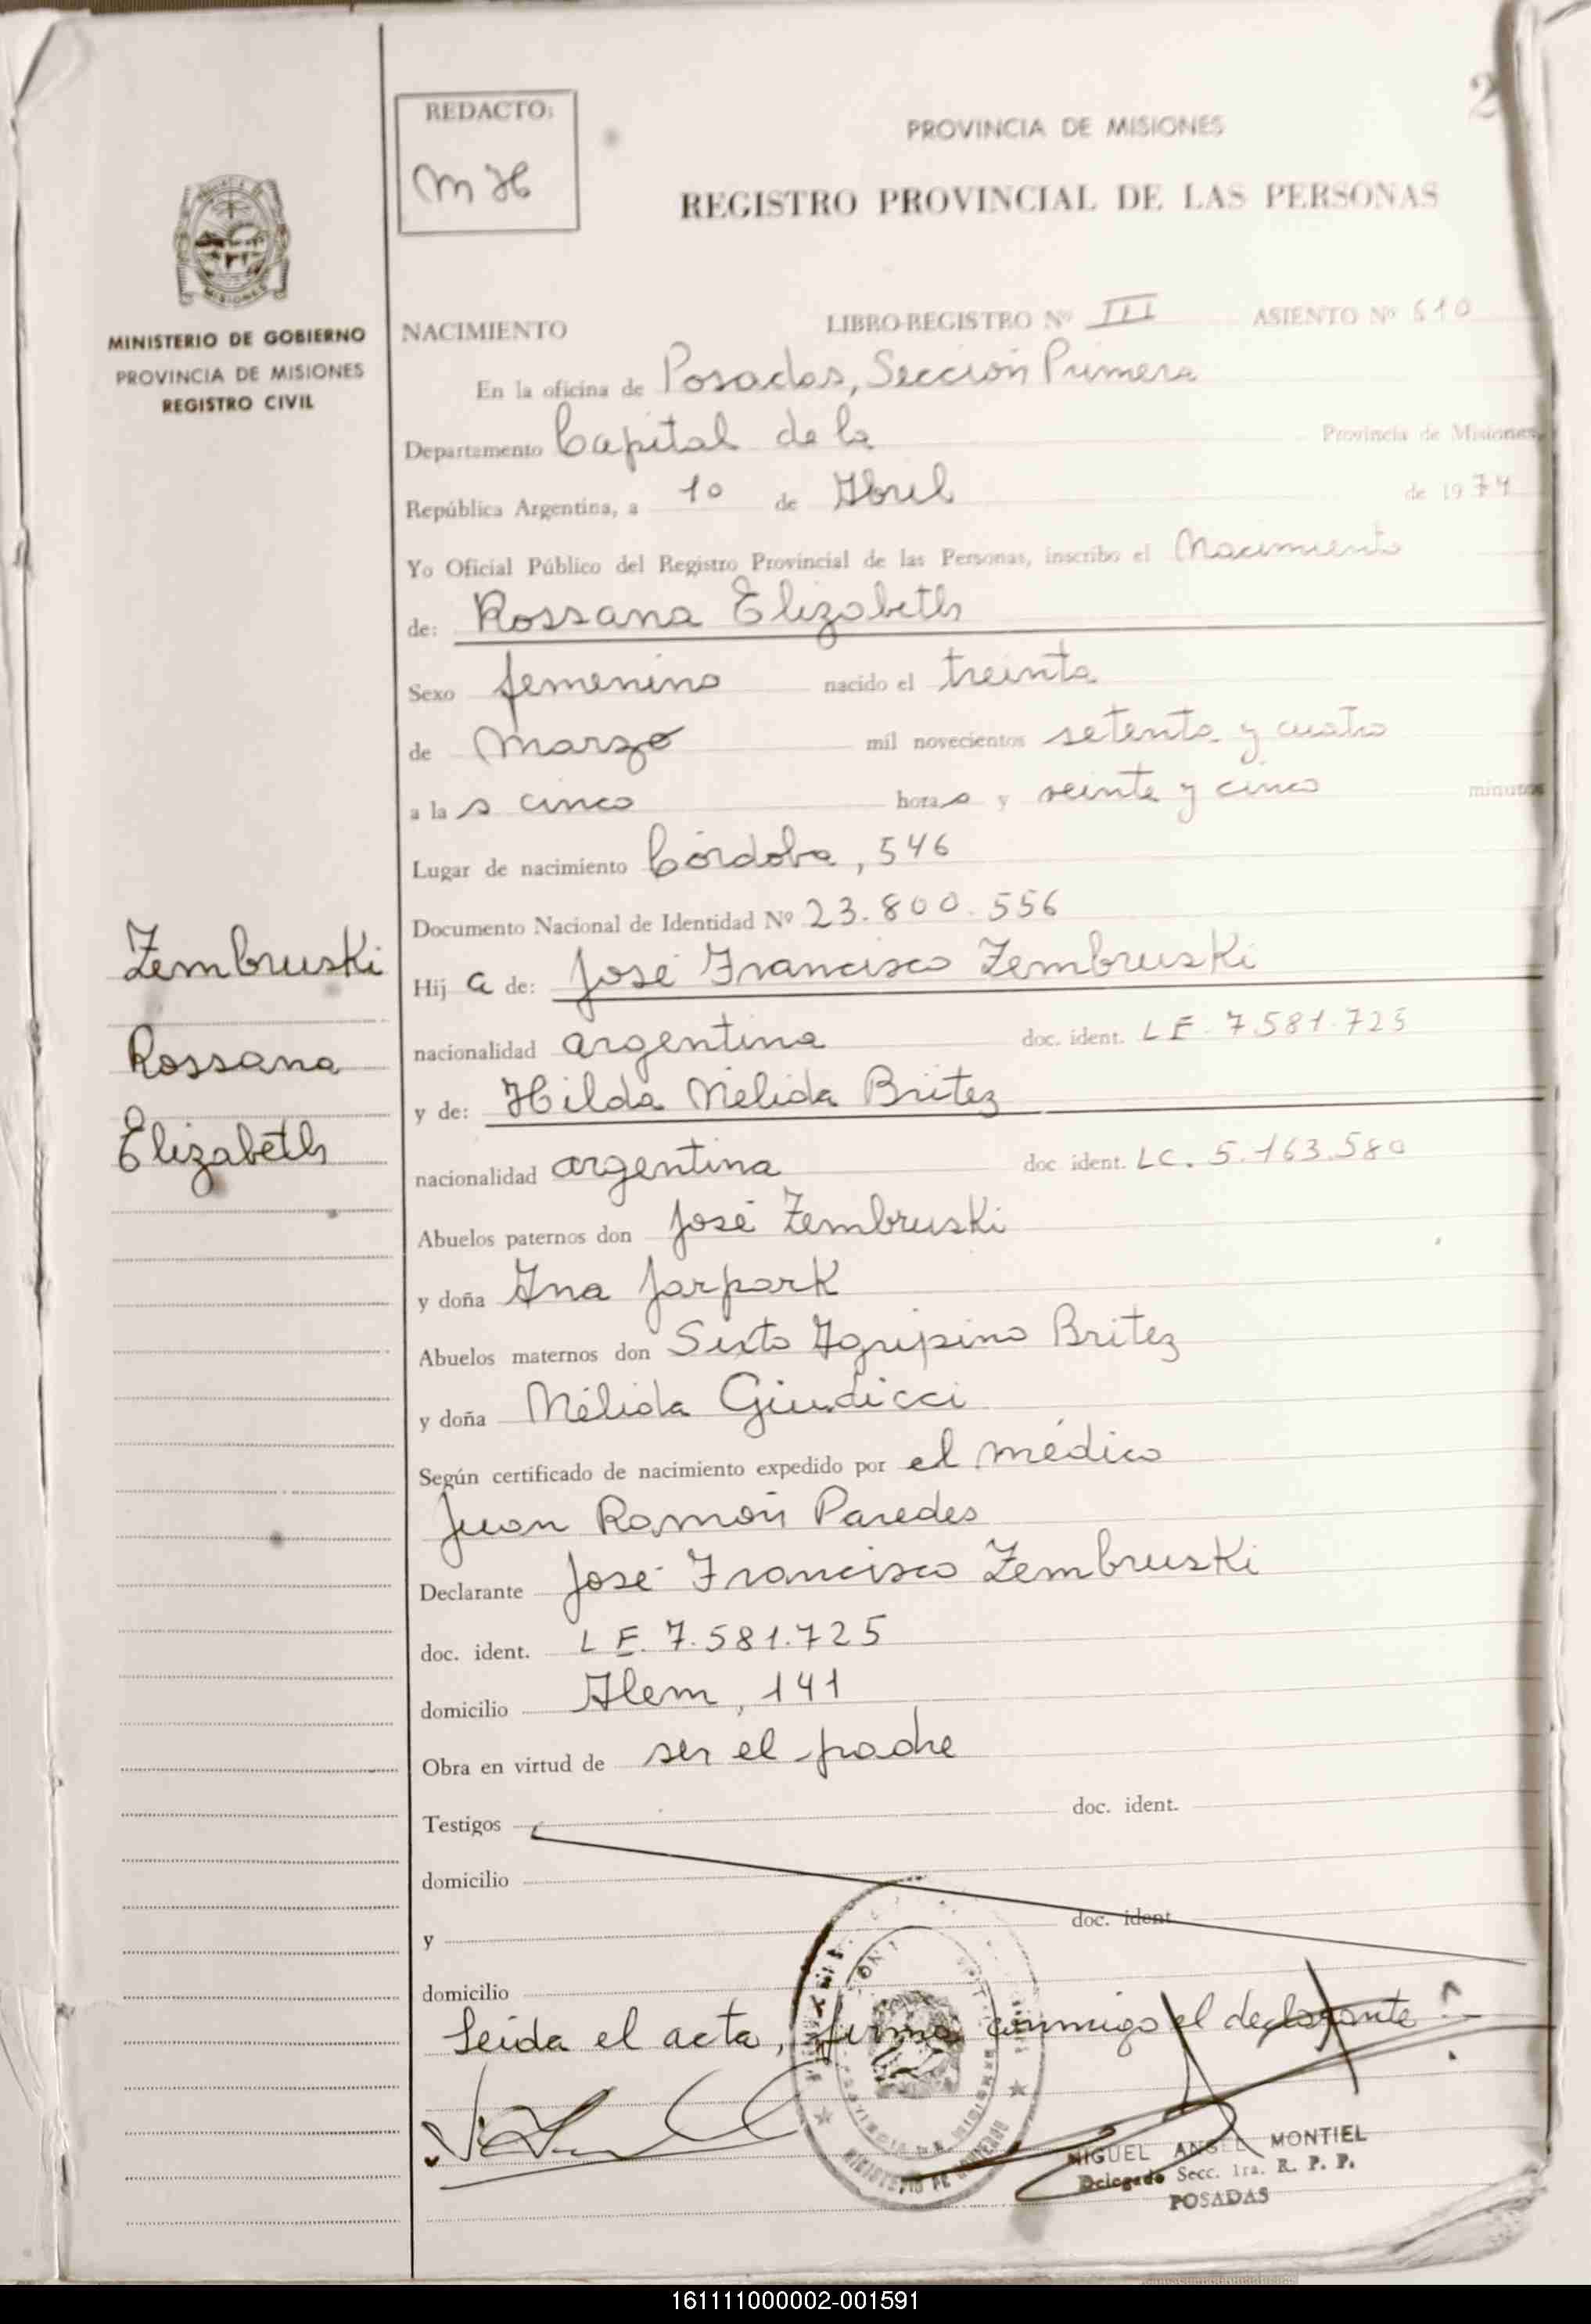 2
REDACTO:
M H
PROVINCIA DE MISIONES
REGISTRO PROVINCIAL DE LAS PERSONAS
MISIONES
MINISTERIO DE GOBIERNO
PROVINCIA DE MISIONES
REGISTRO CIVIL
NACIMIENTO LIBRO-REGISTRO Nº III ASIENTO Nº 610
En la oficina de Posadas, Sección Primera
Departamento Capital de la Provincia de Misiones,
República Argentina, a 10 de Abril de 1974
Yo Oficial Público del Registro Provincial de las Personas, inscribo el Nacimiento
de: Rossana Elizabeth
Sexo femenino nacido el treinta
de Marzo mil novecientos setenta y cuatro
a la s cinco hora s y veinte y cinco minutos
Lugar de nacimiento Córdoba, 546
Documento Nacional de Identidad Nº 23.800.556
Zembruski
Rossana
Elizabeth
Hij a de: José Francisco Zembruski
nacionalidad argentina doc. ident. LE. 7.581.725
y de: Hilda Nélida Britez
nacionalidad argentina doc ident. LC. 5.163.580
Abuelos paternos don José Zembruski
y doña Ana Jarpark
Abuelos maternos don Sixto Agripino Britez
y doña Nélida Giudicci
Según certificado de nacimiento expedido por el médico
Juan Ramón Paredes
Declarante José Francisco Zembruski
doc. ident. LE. 7.581.725
domicilio Alem, 141
Obra en virtud de ser el padre
Testigos doc. ident.
domicilio
y doc. ident
domicilio
Leída el acta, firma conmigo el declarante.-
MINISTERIO DE GOBIERNO
MIGUEL ANGEL MONTIEL
Delegado Secc. 1ra. R. P. P.
POSADAS
161111000002-001591